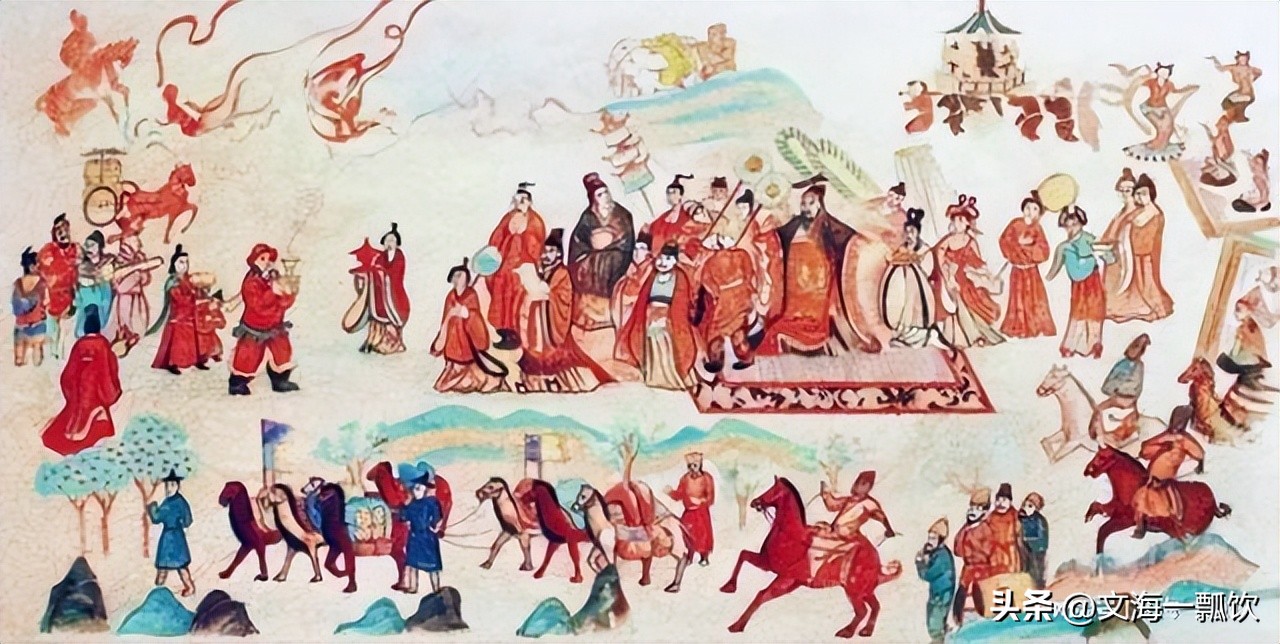 头条 @文海一瓢饮